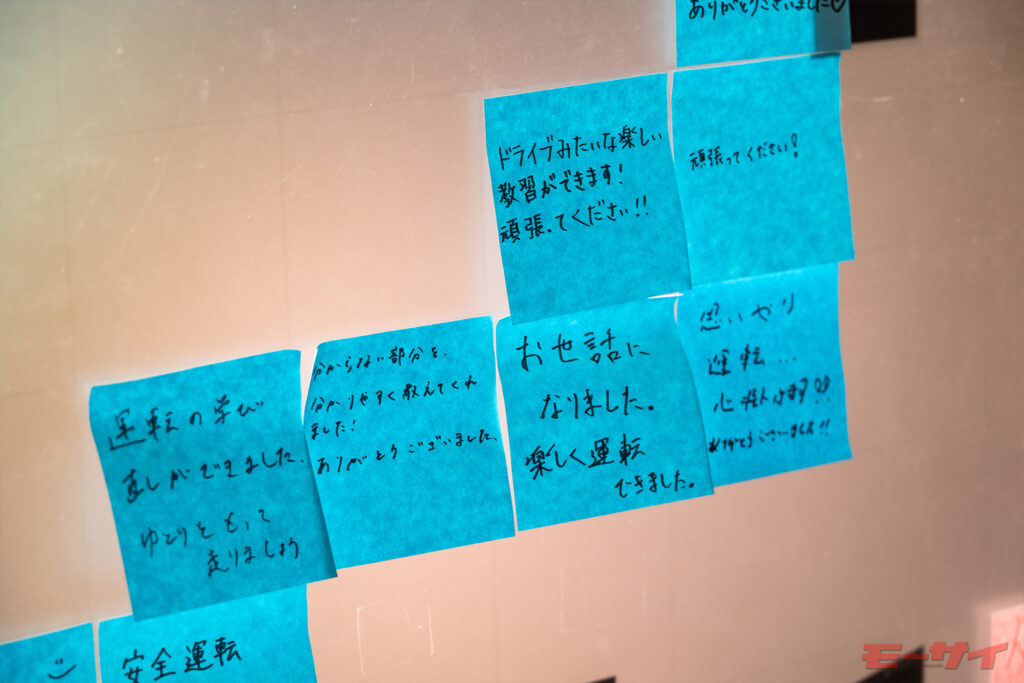 ありがとうございました
ドライブみたいな楽しい
教習ができます!
頑張ってください!!
頑張ってください!
運転の学び
直しができました。
ゆとりをもって
走りましょう
分からない部分を、
分かりやすく教えてくれ
ました!
ありがとうございました。
お世話に
なりました。
楽しく運転
できました。
思いやり
運転...
心掛けます!!
ありがとうございました!!
安全運転
モーサイ